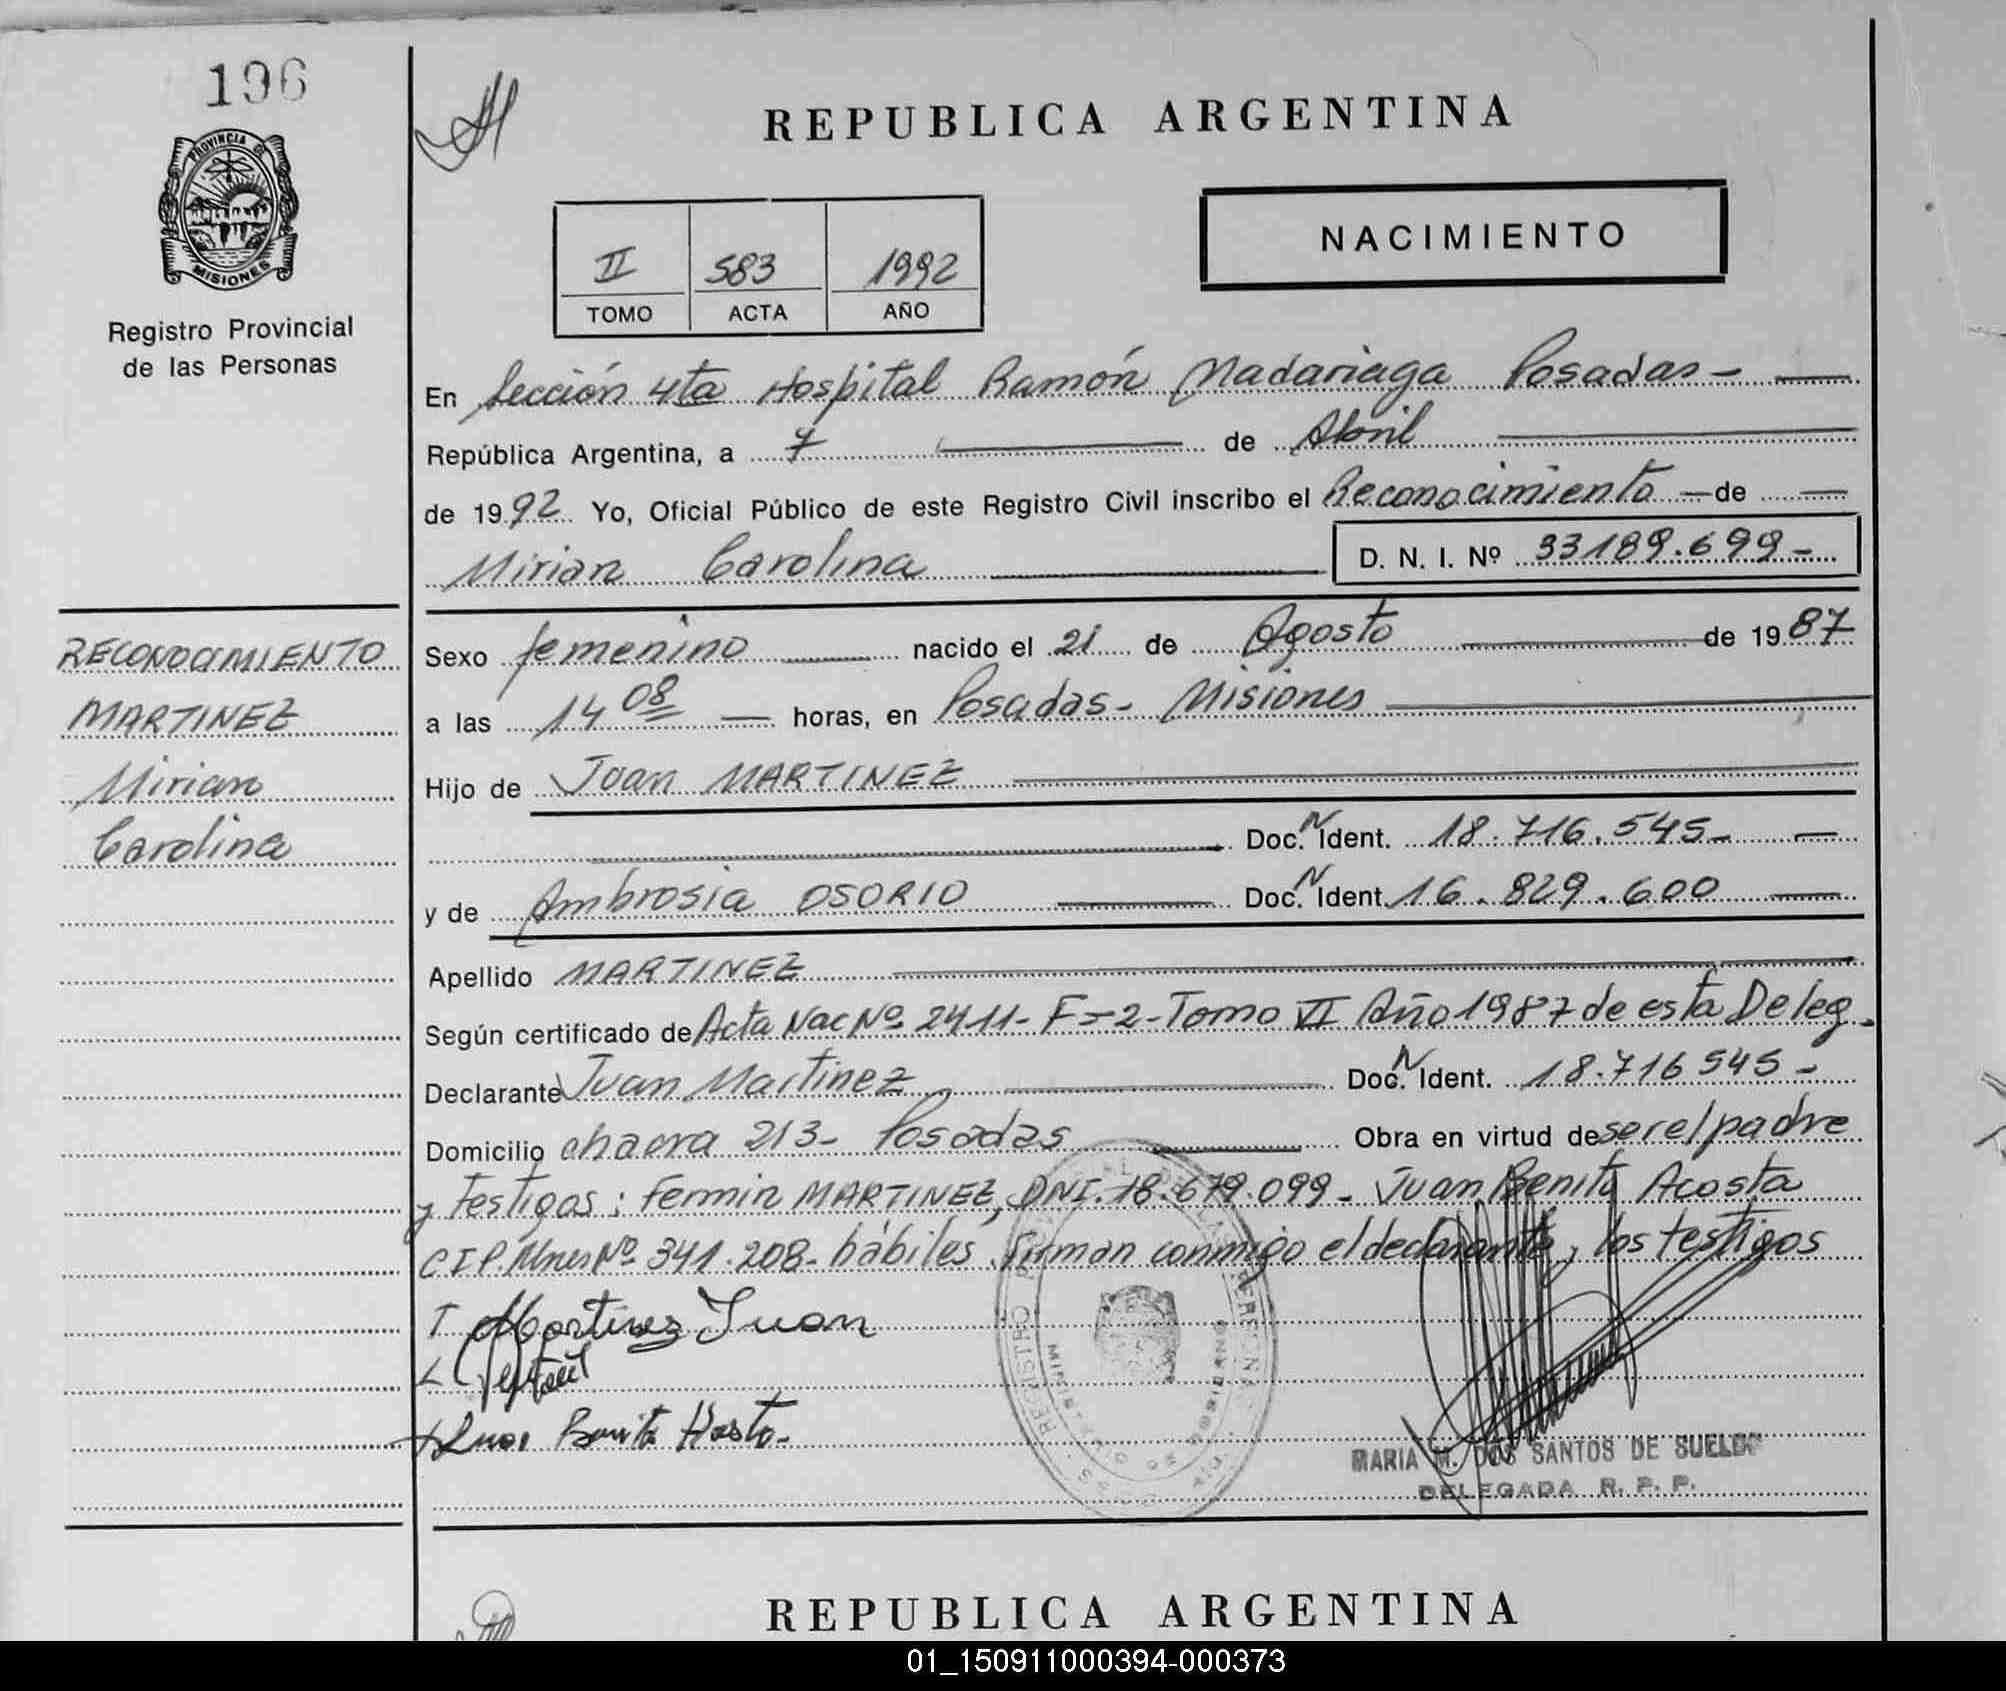 196
PROVINCIA DE
MISIONES
Registro Provincial
de las Personas
REPUBLICA ARGENTINA
NACIMIENTO
II 583 1992
TOMO ACTA AÑO
En Sección 4ta Hospital Ramón Madariaga Posadas -
República Argentina, a 7 de Abril
de 1992 Yo, Oficial Público de este Registro Civil inscribo el Reconocimiento de
Mirian Carolina D. N. I. Nº 33189.699-
RECONOCIMIENTO
MARTINEZ
Mirian
Carolina
Sexo femenino nacido el 21 de Agosto de 1987
a las 14 08 horas, en Posadas - Misiones
Hijo de Juan MARTINEZ
Doc. N Ident. 18.716.545-
y de Ambrosia OSORIO Doc. N Ident. 16.829.600
Apellido MARTINEZ
Según certificado de Acta Nac Nº 2411- F=2- Tomo VI Año 1987 de esta Deleg.
Declarante Juan Martinez Doc. N Ident. 18.716 545-
Domicilio chacra 213- Posadas Obra en virtud de ser el padre
y testigos: Fermin MARTINEZ, DNI. 18.679.099- Juan Benito Acosta
C I P. Mnes Nº 341.208- hábiles. Firman conmigo el declarante y los testigos
Martinez Juan
Juan Benito Acosta-
REGISTRO
MINISTERIO DE GOBIERNO
MARIA M. DOS SANTOS DE SUELDO
DELEGADA R. P. P.
REPUBLICA ARGENTINA
01_150911000394-000373